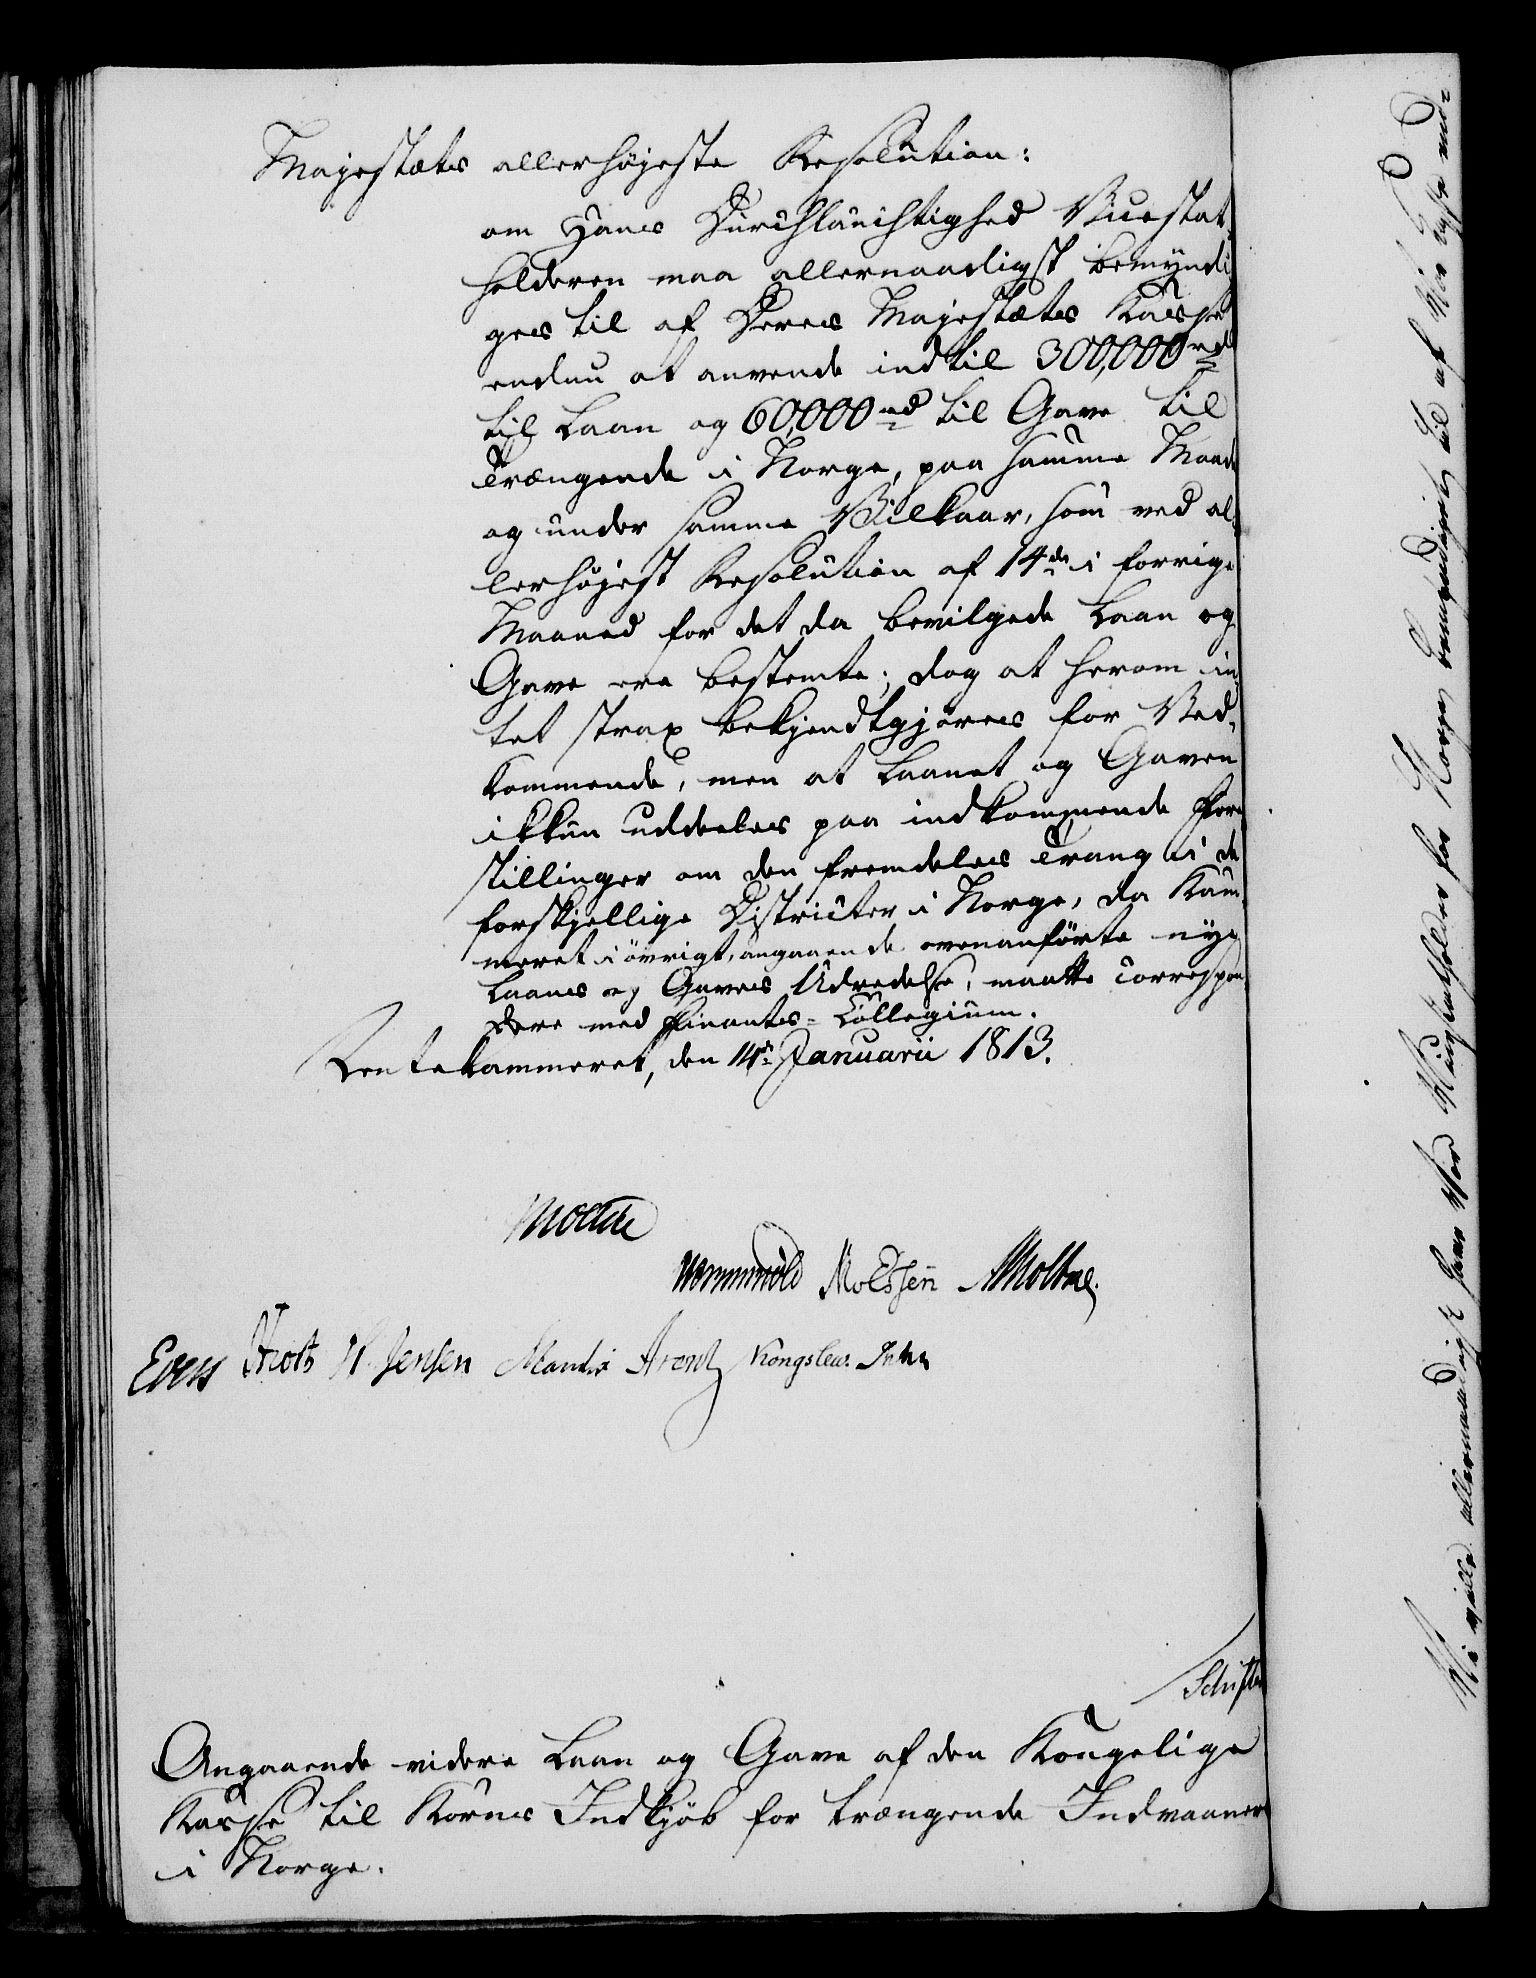 Majestæts allerhøjeste Resolution:
om Hans Durchlauchtighed Vicestat-
holderen maa allernaadigst bemyndi-
ges til af Deres Majestæts Kasse
endnu at anvende indtil 300,000 rd
til Laan og 60,000 rd til Gave til
Trængende i Norge, paa samme Maade
og under samme Vilkaar, som ved al-
lerhøjest Resolution af 14de i forrige
Maaned for det da bevilgede Laan og
Gave ere bestemte; dog at herom in-
tet strax bekjendtgjøres for Ved-
kommende, men at Laanet og Gaven
ikkun uddeeles paa indkommende Fore-
stillinger om den fremdeles Trang i de
forskjellige Districter i Norge, da Kam-
meret i øvrigt, angaaende ovenanførte nye
Laans og Gaves Udredelse, maatte correspon-
dere med Finants-Collegium.
Rentekammeret, den 14de Januarii 1813.
Moltke
Wormskiold Moessen AMoltke.
Evers Hroth H. Jensen Manthe Arentz Kongslew.
Schifter
Angaaende videre Laan og Gave af den Kongelige
Kasse til Korns Indkjøb for trængende Indvaanere
i Norge.
Vi ville allernaadigst have Vor Vicestatholder for Norge bemyndiget til af Vor Kasse end-